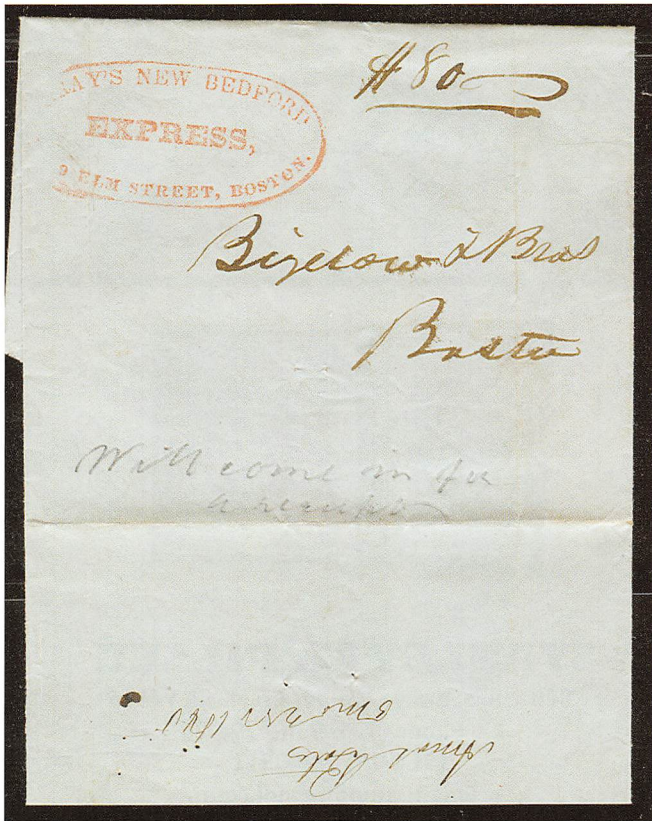 $ 80
AY'S NEW BEDFORD
EXPRESS,
9 ELM STREET, BOSTON.
Bigelow & Bros
Boston
Will come in for
a receipt